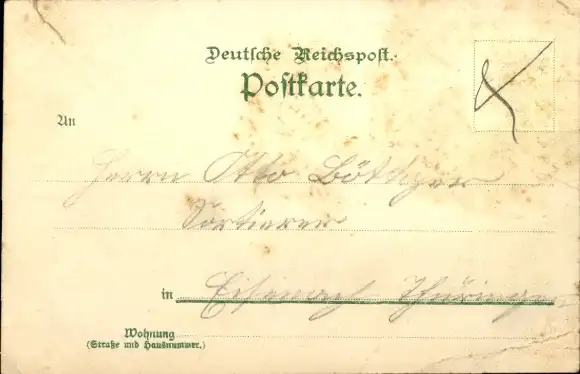 Deutsche Reichspost.
Postkarte.
An
Herrn Otto Böttcher
Sortierer
in Eisenach Thüringen
Wohnung
(Straße und Hausnummer.)